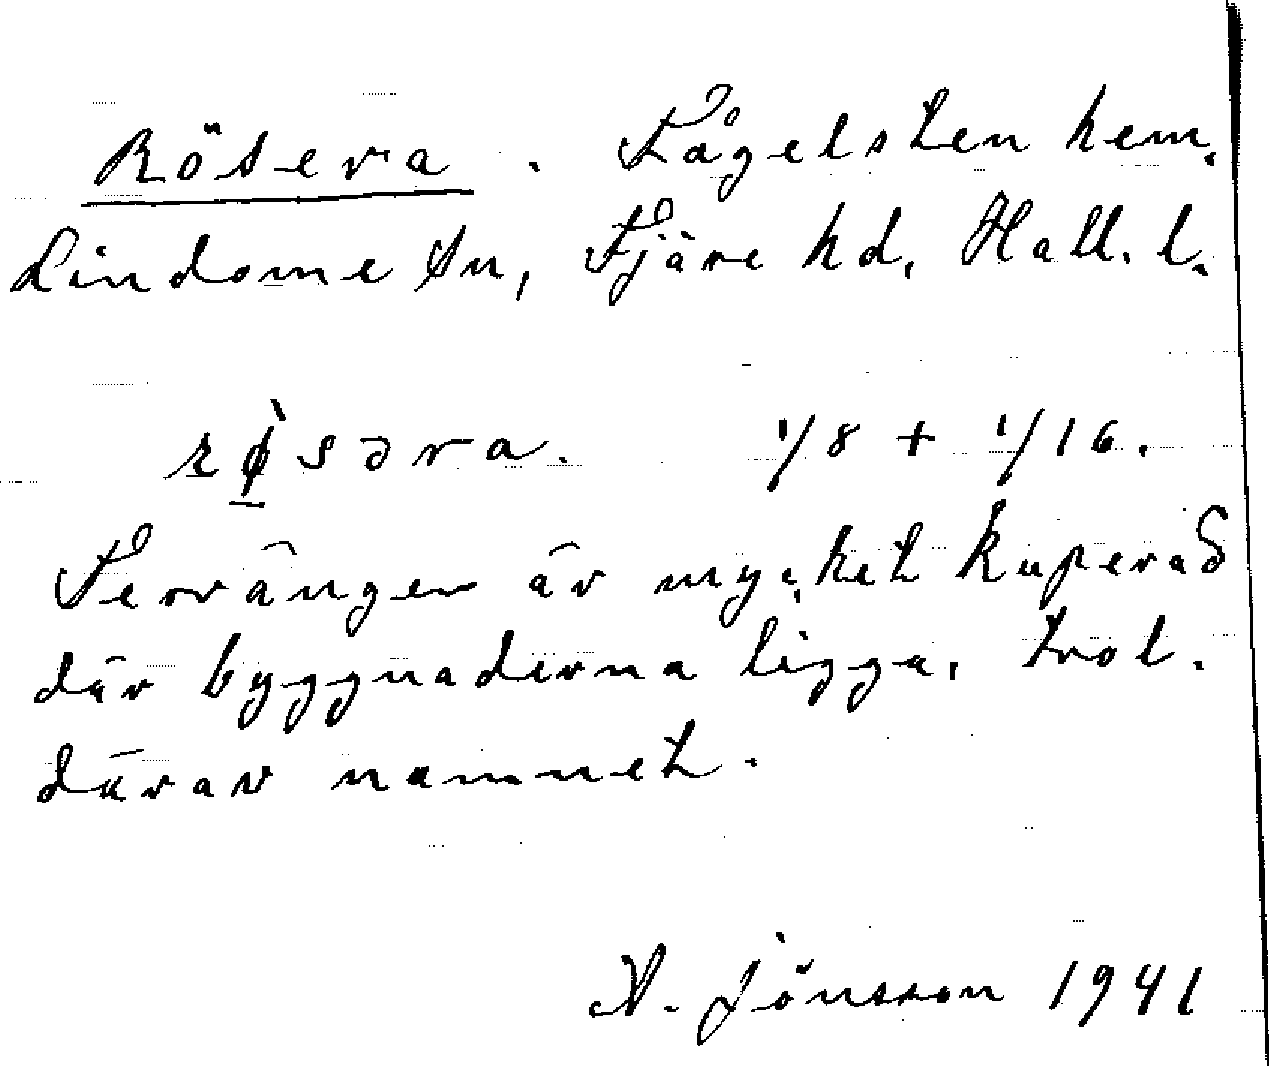 Rösera. Fågelsten hem.
Lindome sn, Fjäre hd, Hall. l.
rø̀səra. 1/8 + 1/16.
Terrängen är mycket kuperad
där byggnaderna ligga, trol.
därav namnet.
A. Jönsson 1941